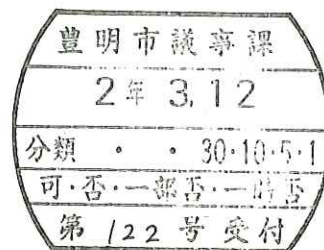 豊明市議事課
2年 3.12
分類 ・ ・ 30・10・5・1
可・否・一部否・一時否
第 122 号 受付